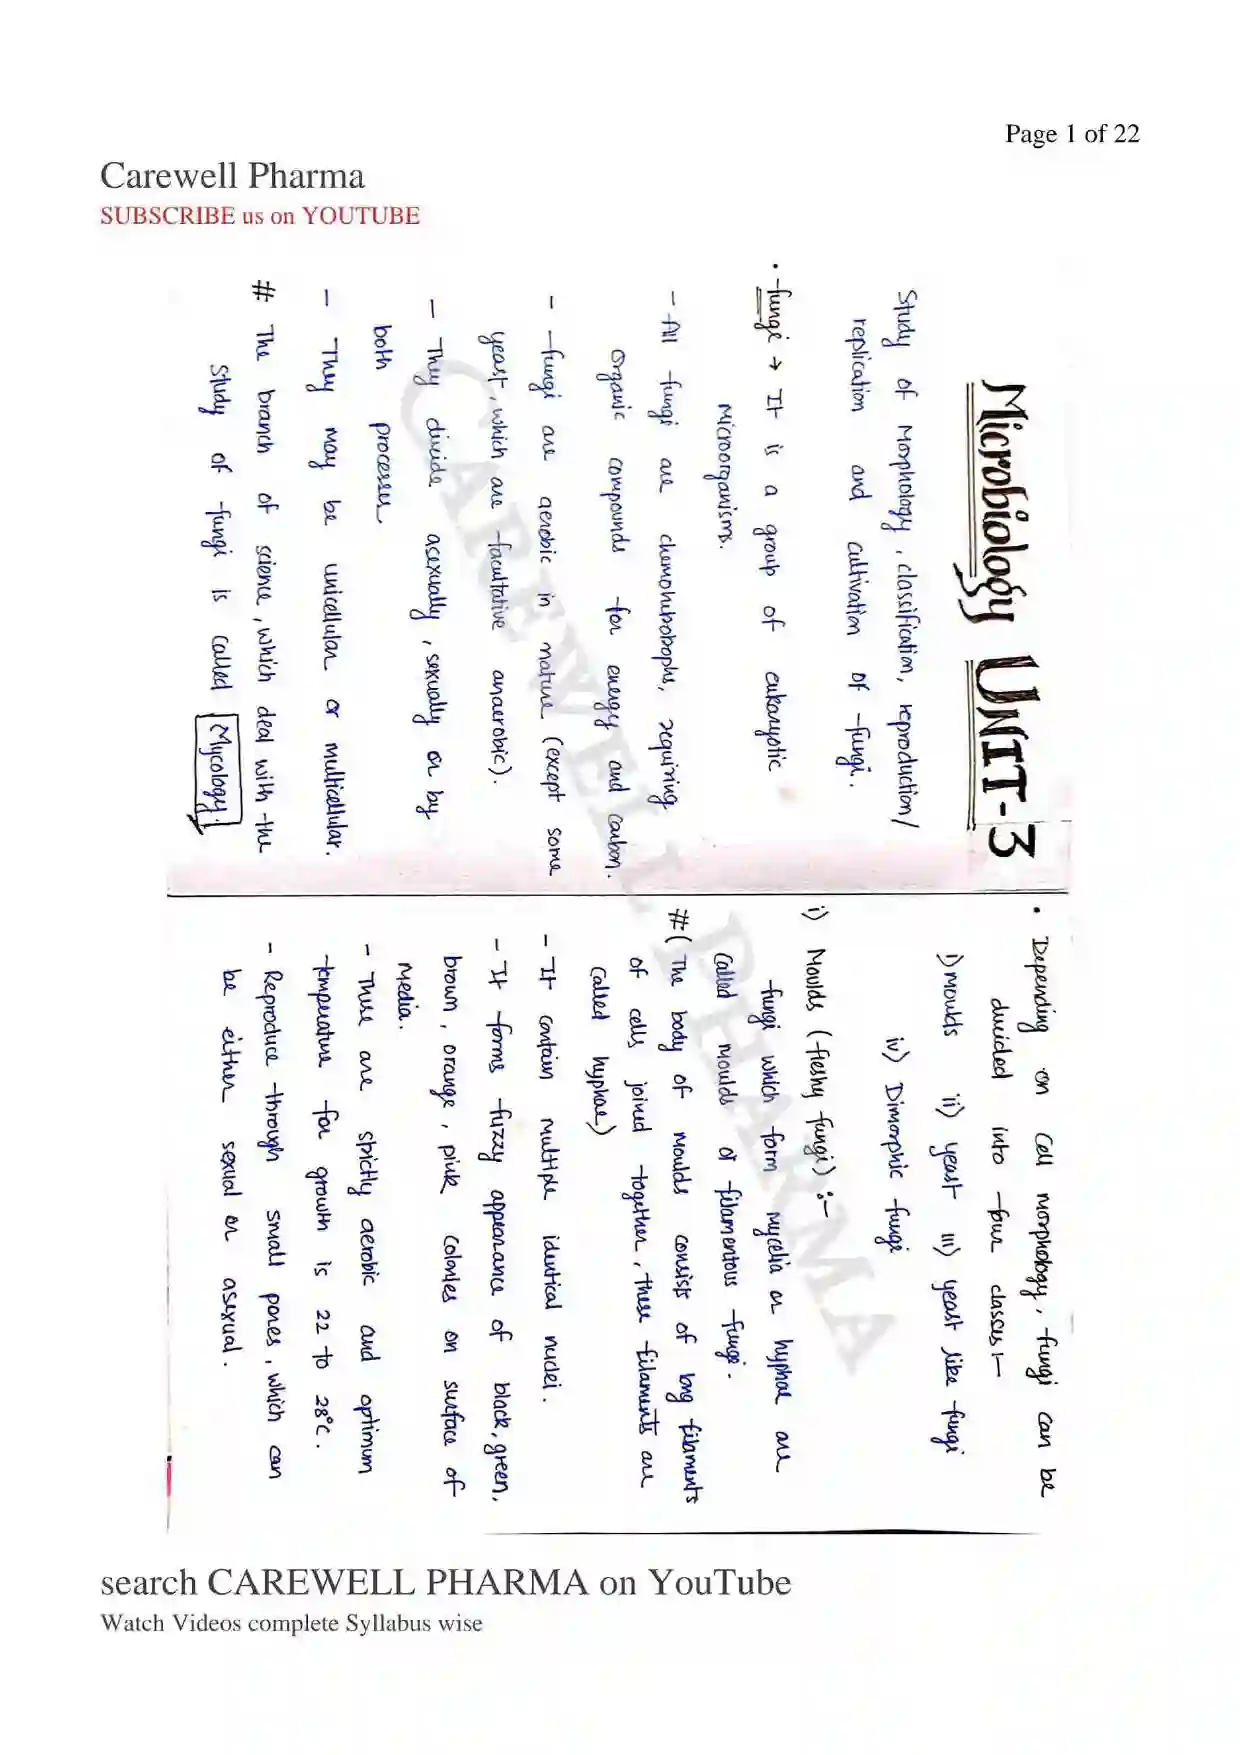 Page 1 of 22
Carewell Pharma
SUBSCRIBE us on YOUTUBE
Microbiology UNIT-3
Study of Morphology, classification, reproduction/
replication and cultivation of fungi.
• fungi → It is a group of eukaryotic
Microorganisms.
- All fungi are chemohetrotrophs, requiring
organic compounds for energy and carbon.
- fungi are aerobic in nature (except some
yeast, which are facultative anaerobic).
- They divide asexually, sexually or by
both processes
- They may be unicellular or multicellular.
# The branch of science, which deal with the
study of fungi is called Mycology.
• Depending on cell morphology, fungi can be
divided into four classes:-
i) moulds ii) yeast iii) yeast like fungi
iv) Dimorphic fungi
i) Moulds (fleshy fungi) :-
fungi which form mycelia or hyphae are
called moulds or filamentous fungi.
# (The body of moulds consists of long filaments
of cells joined together, these filaments are
called hyphae)
- It contain multiple identical nuclei.
- It forms fuzzy appearance of black, green,
brown, orange, pink colonies on surface of
Media.
- These are strictly aerobic and optimum
temperature for growth is 22 to 28°C.
- Reproduce through small pores, which can
be either sexual or asexual.
CAREWELL PHARMA
search CAREWELL PHARMA on YouTube
Watch Videos complete Syllabus wise